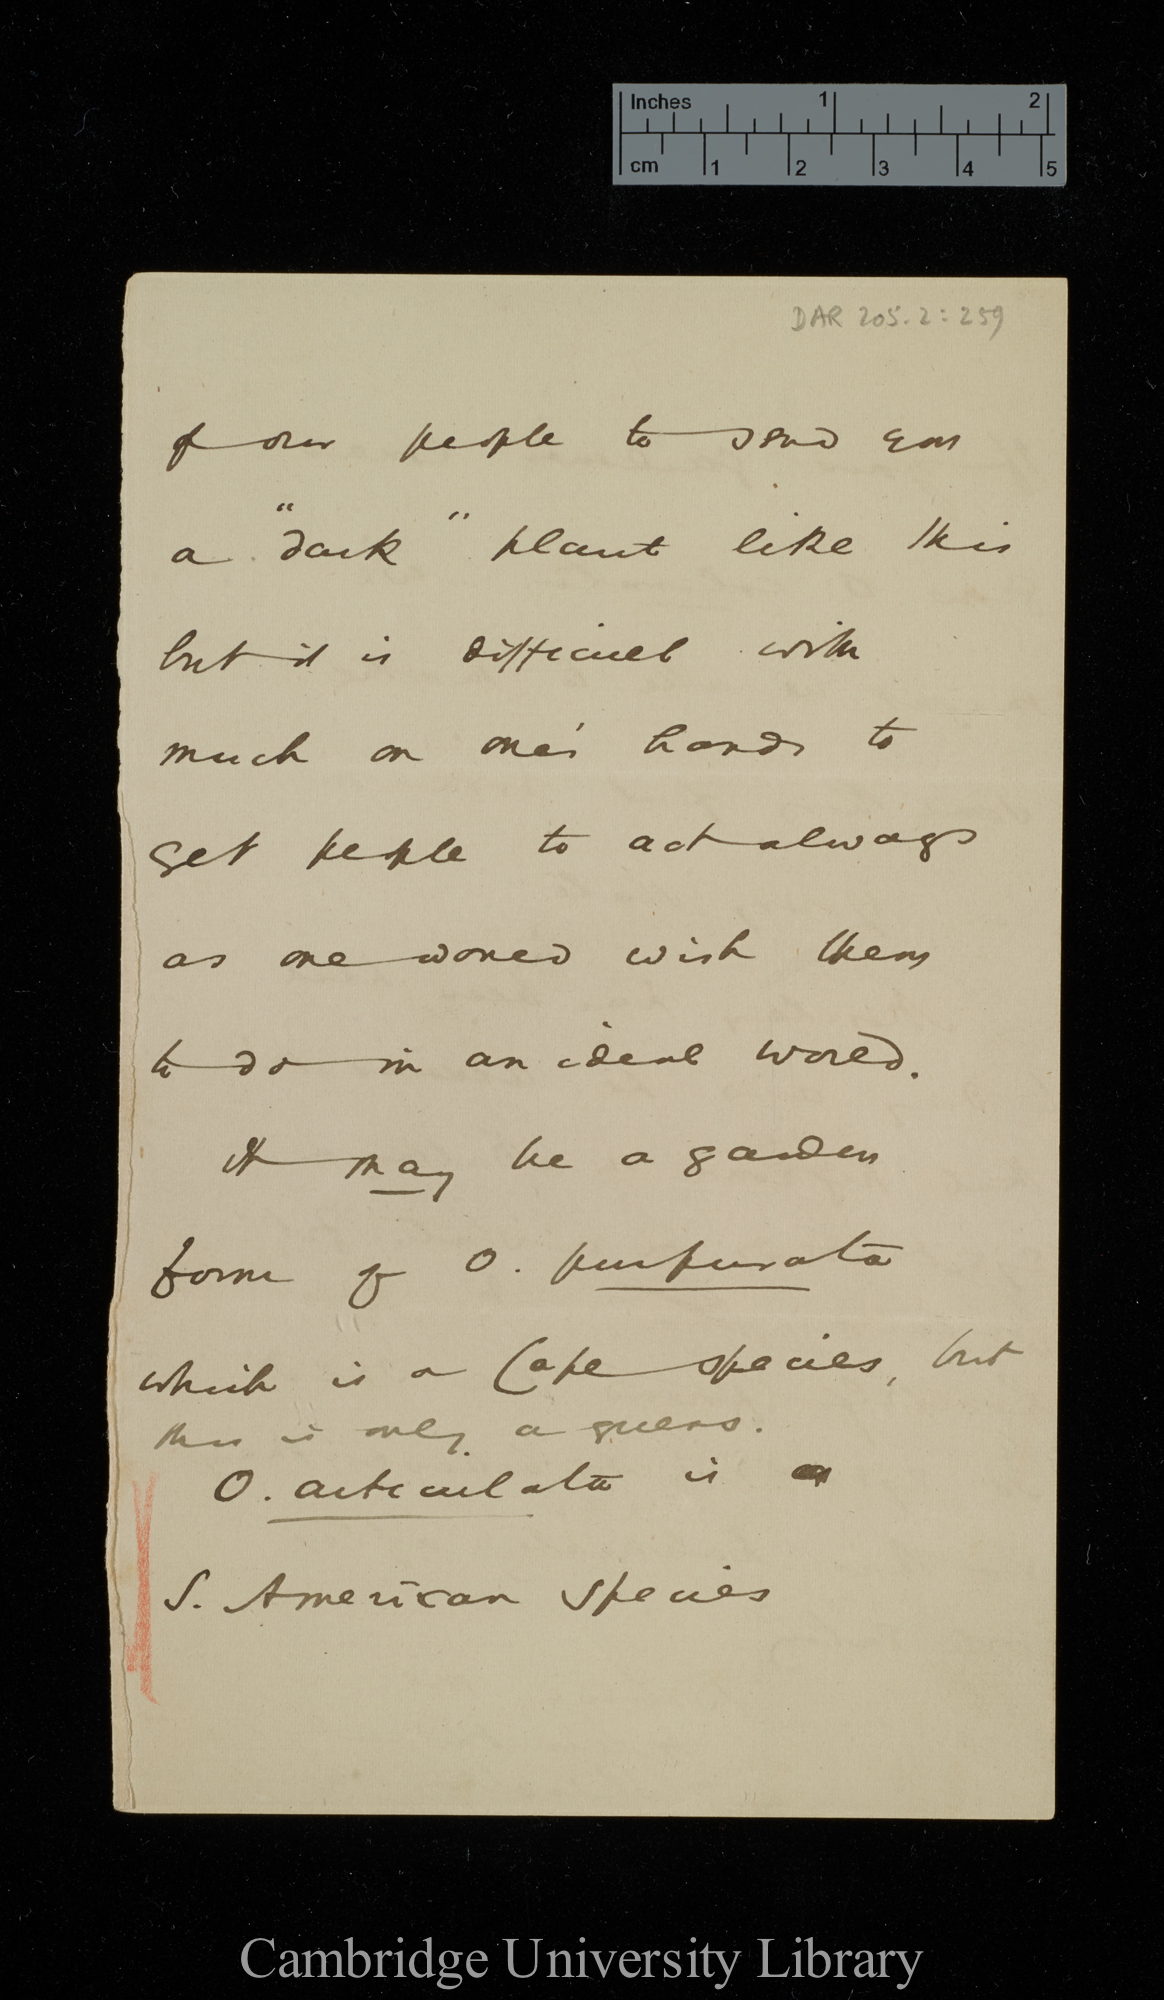 Inches 1 2
cm 1 2 3 4 5
DAR 205.2:259
of our people to send you
a "dark" plant like this
but it is difficult with
much on one's hands to
get people to act always
as one would wish them
to do in an ideal world.
It may be a garden
form of O. purpurata
which is a Cape species, but
this is only a guess.
O. articulata is
S. American species
Cambridge University Library